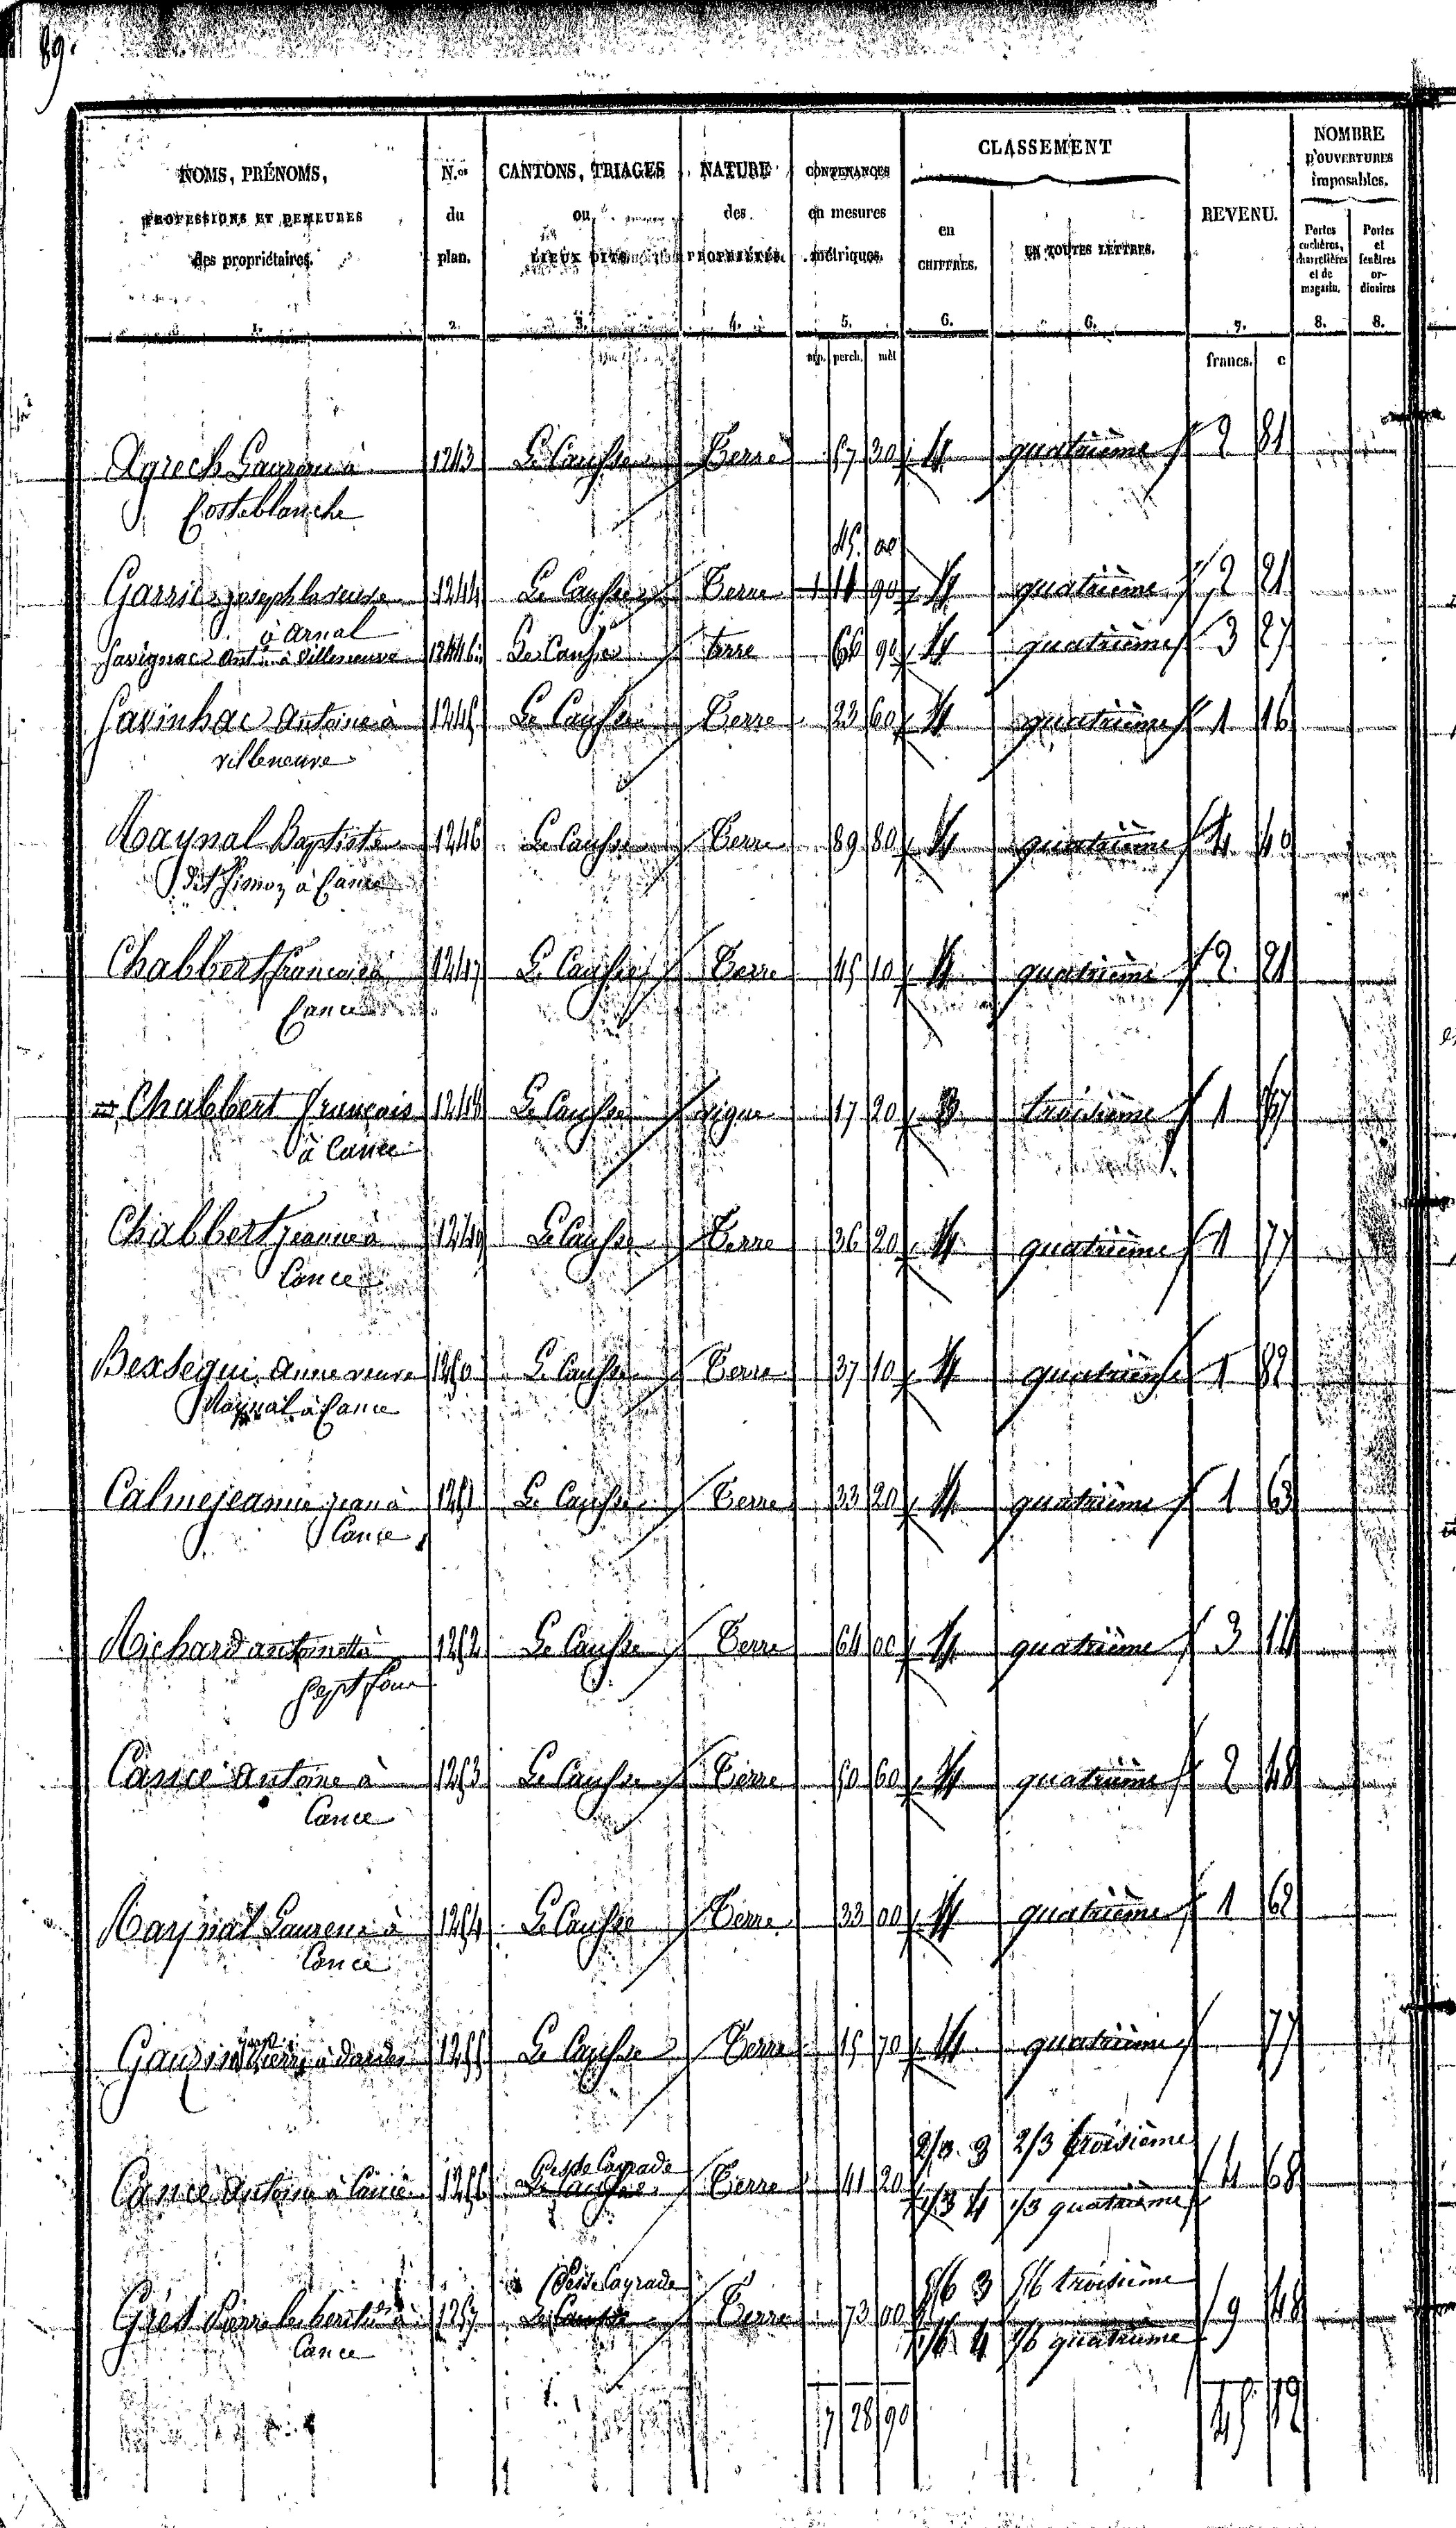 89.
NOMS, PRÉNOMS, PROFESSIONS ET DEMEURES des propriétaires. 1.
N.os du plan. 2.
CANTONS, TRIAGES ou LIEUX DITS 3.
NATURE des PROPRIÉTÉS. 4.
CONTENANCES en mesures métriques. 5.
CLASSEMENT
en CHIFFRES. 6.
EN TOUTES LETTRES. 6.
REVENU. 7.
NOMBRE D'OUVERTURES imposables.
Portes cochères, charretières et de magasin. 8.
Portes et fenêtres ordinaires 8.
arp. perch. mèt francs. c
1243 Le Causse Terre 57 30 4 quatrième 2 81
Costeblanche
45 00
Garric joseph la veuve 1244 Le Causse Terre 1 11 90 4 quatrième 2 21
à Arnal
Savignac Ant. à Villeneuve 1244 bis Le Causse terre 66 90 4 quatrième 3 27
Savinhac Antoine à 1245 Le Causse Terre 23 60 4 quatrième 1 16
villeneuve
Raynal Baptiste 1246 Le Causse Terre 89 80 4 quatrième 4 40
dit à Cance
Chabbert francois à 1247 Le Causse Terre 45 10 4 quatrième 2 21
Cance
Chabbert françois 1248 Le Causse vigne 17 20 3 troisième 1
à Cance
Chabbert jeanne à 1249 Le Causse Terre 36 20 4 quatrième 1 77
Cance
Bexsegui anne veuve 1250 Le Causse Terre 37 10 4 quatrième 1 82
Raynal à Cance
Calmejeanne jean à 1251 Le Causse Terre 33 20 4 quatrième 1 63
Cance
Richard antoinette à 1252 Le Causse Terre 64 00 4 quatrième 3 14
Sept fons
Cance Antoine à 1253 Le Causse Terre 50 60 4 quatrième 2 48
Cance
Raynal Laurens à 1254 Le Causse Terre 33 00 4 quatrième 1 62
Cance
Gauzin Pierre à 1255 Le Causse Terre 15 70 4 quatrième 77
2/3 3 2/3 troisième
Cance Antoine à Cance 1256 Le Causse Terre 41 20 4 68
1/3 4 1/3 quatrième
5/6 3 5/6 troisième
Pierre à 1257 Le Causse Terre 73 00 9 48
Cance 1/6 4 1/6 quatrième
7 28 90 45